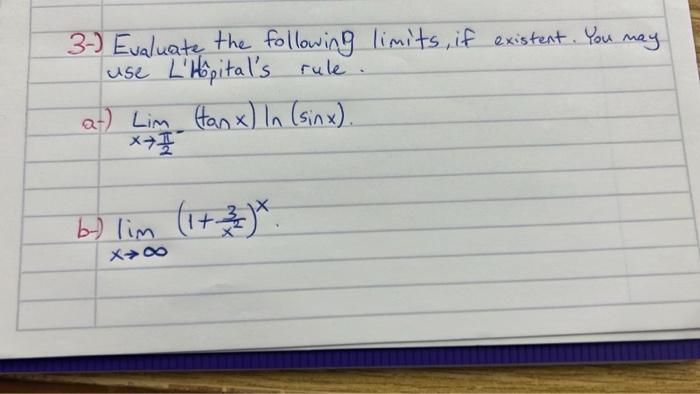 3-) Evaluate the following limits, if existent. You may
use L'Hôpital's rule.
a-) Lim (tanx) ln (sinx).
x→π/2⁻
b-) lim (1+3/x²)^x.
x→∞